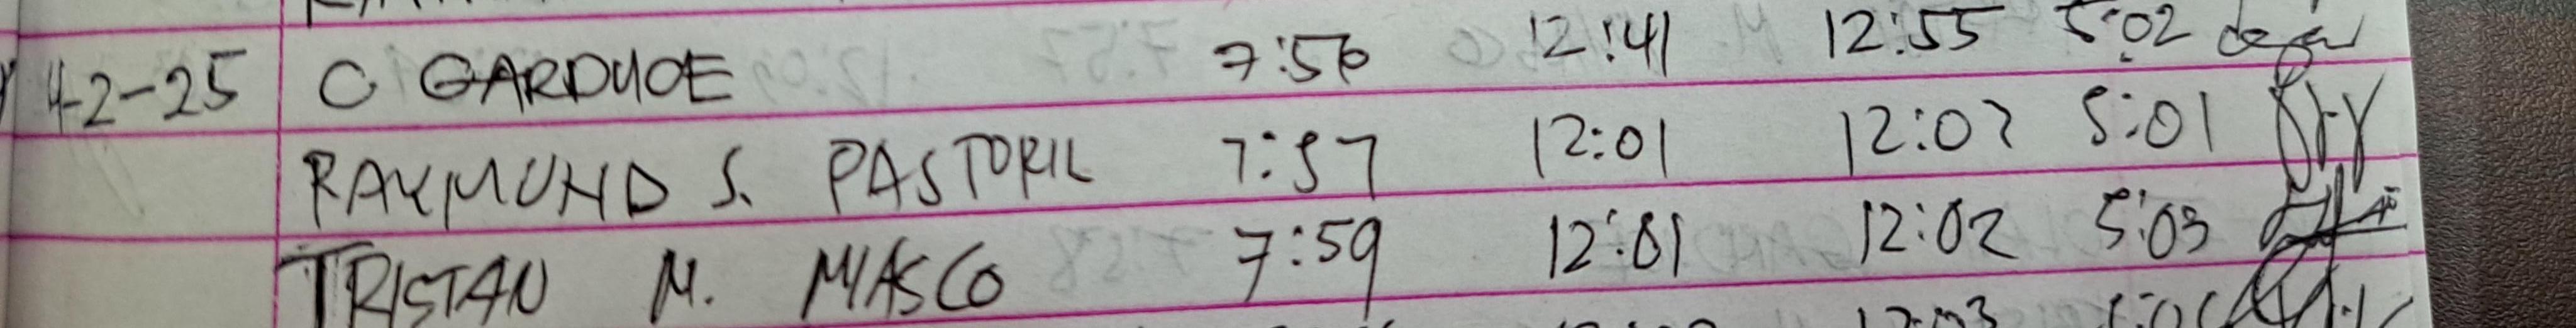 4-2-25 C GARDUCE 7:56 12:41 12:55 5:02
RAYMUND S. PASTORIL 7:57 12:01 12:02 5:01
TRISTAN M. MIASCO 7:59 12:01 12:02 5:03
12:03